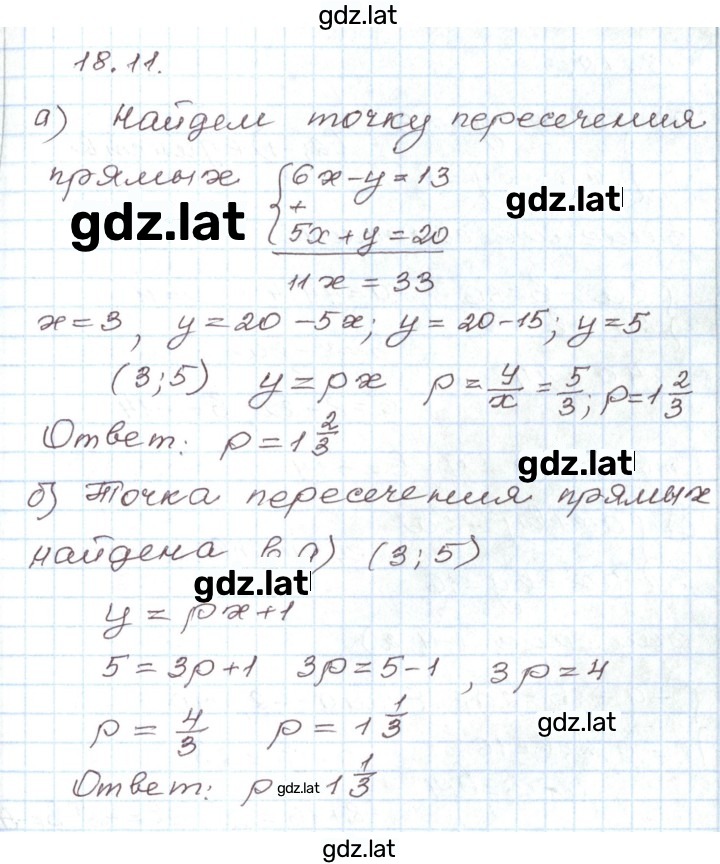 gdz.lat
18.11.
а) Найдем точку пересечения
прямых { 6x-y=13
gdz.lat
+
gdz.lat
5x+y=20
11x = 33
x=3, y=20-5x; y=20-15; y=5
(3;5) y=px p = y/x = 5/3; p=1 2/3
Ответ: p=1 2/3
gdz.lat
б) Точка пересечения прямых
найдена в а) (3;5)
gdz.lat
y = px+1
5=3p+1 3p=5-1, 3p=4
p = 4/3 p = 1 1/3
gdz.lat
Ответ: p gdz.lat 1 1/3
gdz.lat